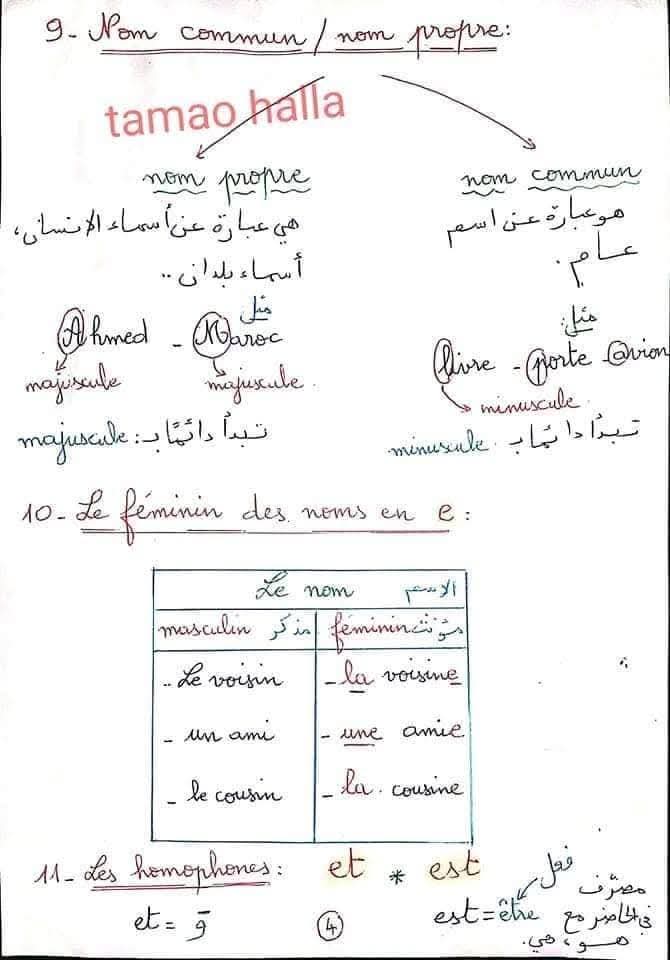 9- Nom commun / nom propre:
tamao halla
nom propre
هي عبارة عن أسماء الإنسان،
أسماء بلدان ..
مثل
Ahmed - Maroc
majuscule majuscule.
majuscule: تبدأ دائمًا بـ
nom commun
هو عبارة عن اسم
عام.
مثل:
livre - porte - avion
minuscule.
minuscule. تبدأ دائمًا بـ
10- Le féminin des noms en e:
Le nom الاسم
masculin مذكر féminin مؤنث
.. Le voisin - la voisine
- un ami - une amie
- le cousin - la cousine
11- Les homophones: et * est
et = و
est = être فعل مصرّف
في الحاضر مع
هو، هي.
4